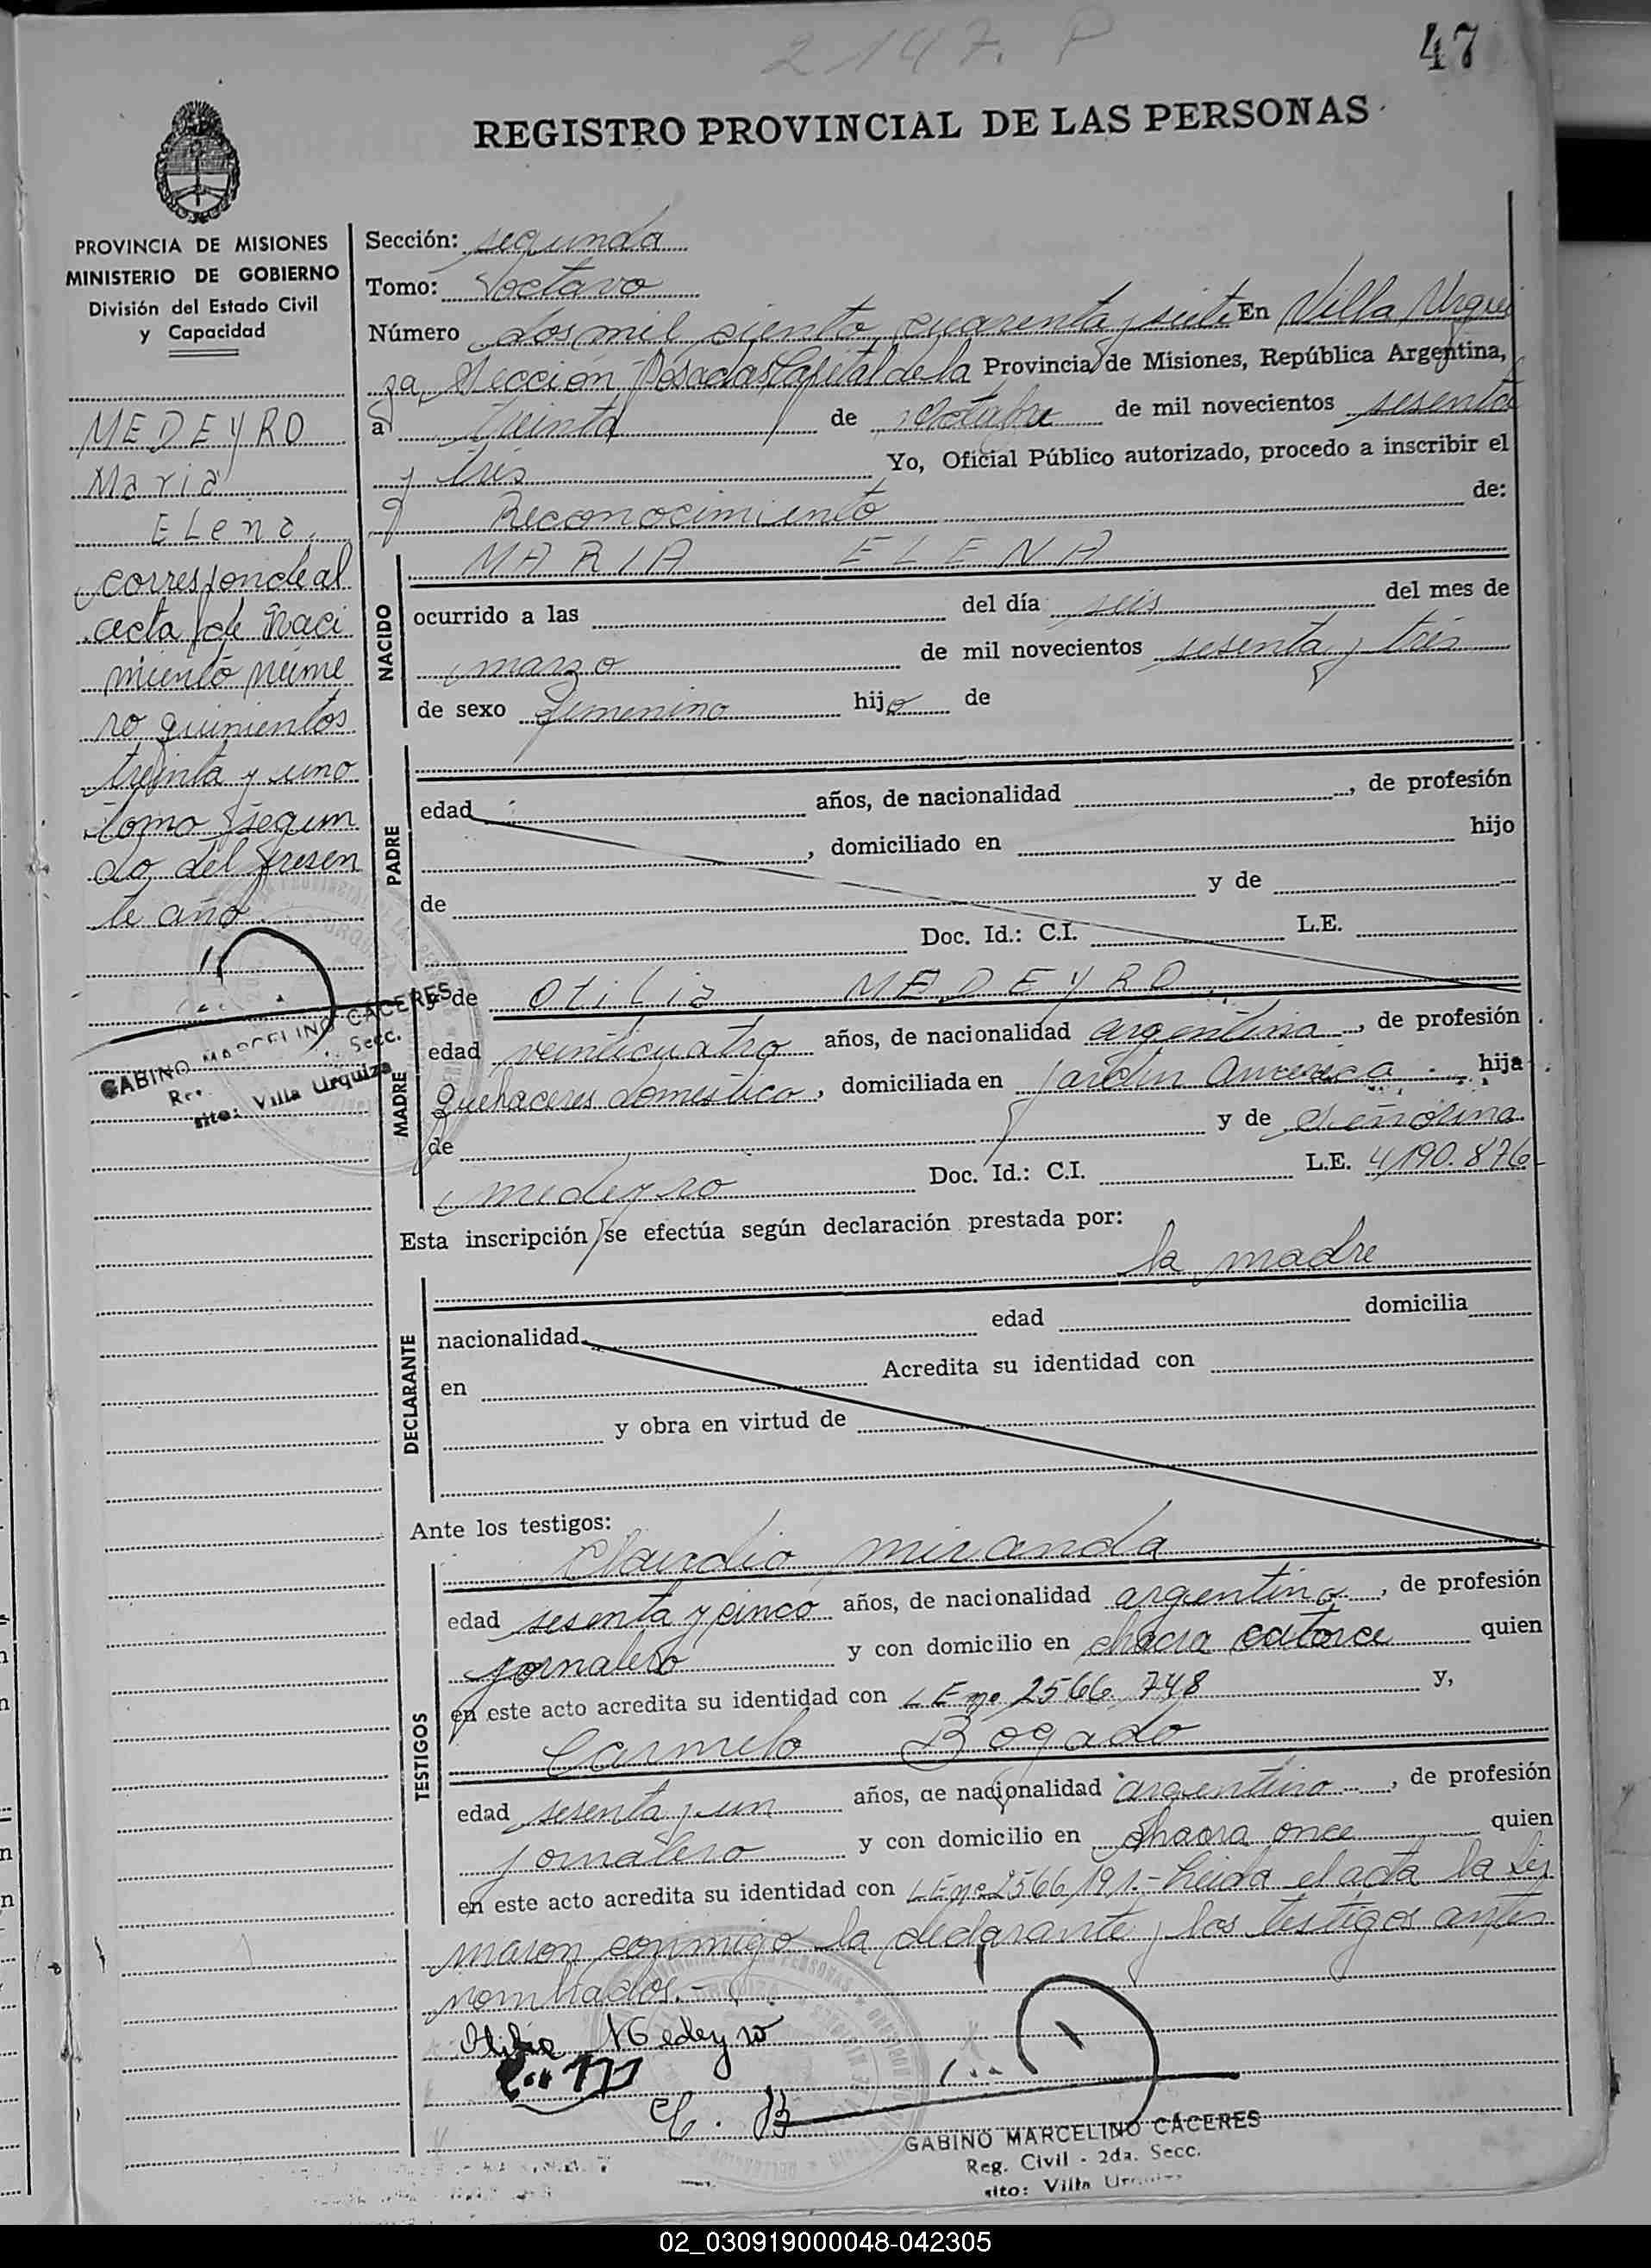 2147. P
47
REGISTRO PROVINCIAL DE LAS PERSONAS
PROVINCIA DE MISIONES
MINISTERIO DE GOBIERNO
División del Estado Civil
y Capacidad
MEDEYRO
Maria
Elena,
corresponde al
acta de naci
miento núme
ro quinientos
treinta y uno
tomo segun
do, del presen
te año
GABINO MARCELINO CACERES
Secc.
sito: Villa Urquiza
Sección: segunda
Tomo: octavo
Número dos mil ciento cuarenta y siete En Villa Urqui
za, Sección Posadas Capital de la Provincia de Misiones, República Argentina,
a treinta de octubre de mil novecientos sesenta
y tres Yo, Oficial Público autorizado, procedo a inscribir el
Reconocimiento de:
NACIDO
MARIA ELENA
ocurrido a las del día seis del mes de
marzo de mil novecientos sesenta y tres
de sexo femenino hijo de
PADRE
edad años, de nacionalidad , de profesión
, domiciliado en hijo
de y de
Doc. Id.: C.I. L.E.
MADRE
y de Otilia MEDEYRO
edad veinticuatro años, de nacionalidad argentina, de profesión
quehaceres domestico, domiciliada en Jardin America hija
de y de Señorina
medeyro Doc. Id.: C.I. L.E. 4190.876
Esta inscripción se efectúa según declaración prestada por:
la madre
DECLARANTE
nacionalidad edad domicilia
en Acredita su identidad con
y obra en virtud de
Ante los testigos:
TESTIGOS
Claudio miranda
edad sesenta y cinco años, de nacionalidad argentino, de profesión
jornalero y con domicilio en chacra catorce quien
en este acto acredita su identidad con L E nº 2566.748 y,
Carmelo Bogado
edad sesenta y un años, de nacionalidad argentino, de profesión
jornalero y con domicilio en chacra once quien
en este acto acredita su identidad con L E nº 2566.191.- Leida el acta la fir
maron conmigo la declarante y los testigos antes
nombrados.-
Otilia Medeyro
C. B
GABINO MARCELINO CACERES
Reg. Civil - 2da. Secc.
sito: Villa
02_030919000048-042305